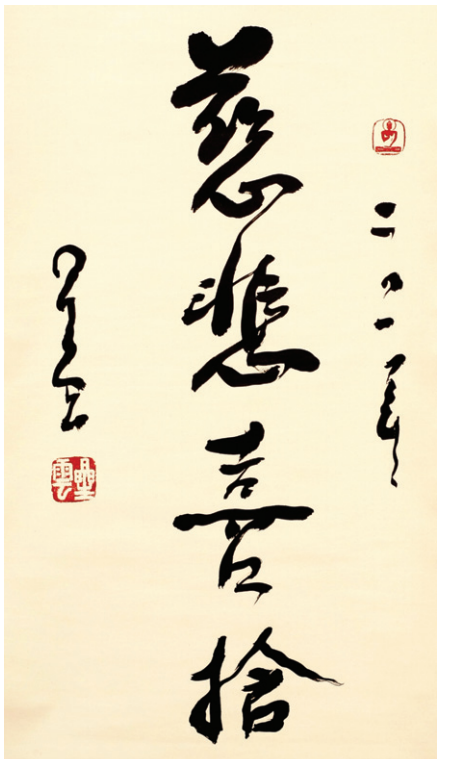 二〇一一
慈悲喜捨
星雲
星雲